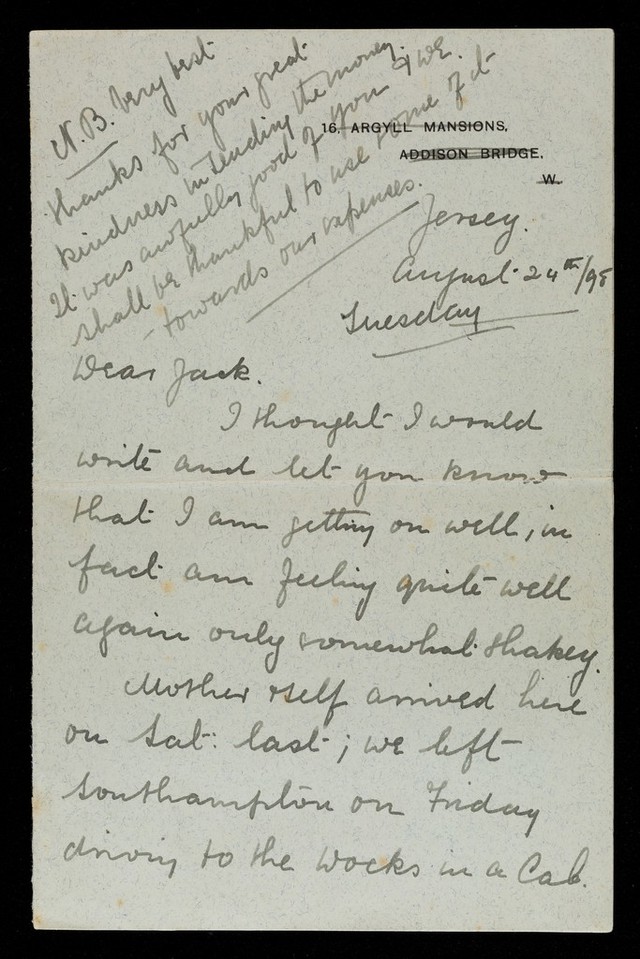 N.B. Very best
thanks for your great
kindness in sending the money.
It was awfully good of you & we
shall be thankful to use some of it
- towards our expenses.
16, ARGYLL MANSIONS,
ADDISON BRIDGE,
W.
Jersey.
August 24th/98
Tuesday
Dear Jack.
I thought I would
write and let you know
that I am getting on well, in
fact am feeling quite well
again only somewhat shakey.
Mother & self arrived here
on Sat: last; we left
Southampton on Friday
driving to the Docks in a Cab.